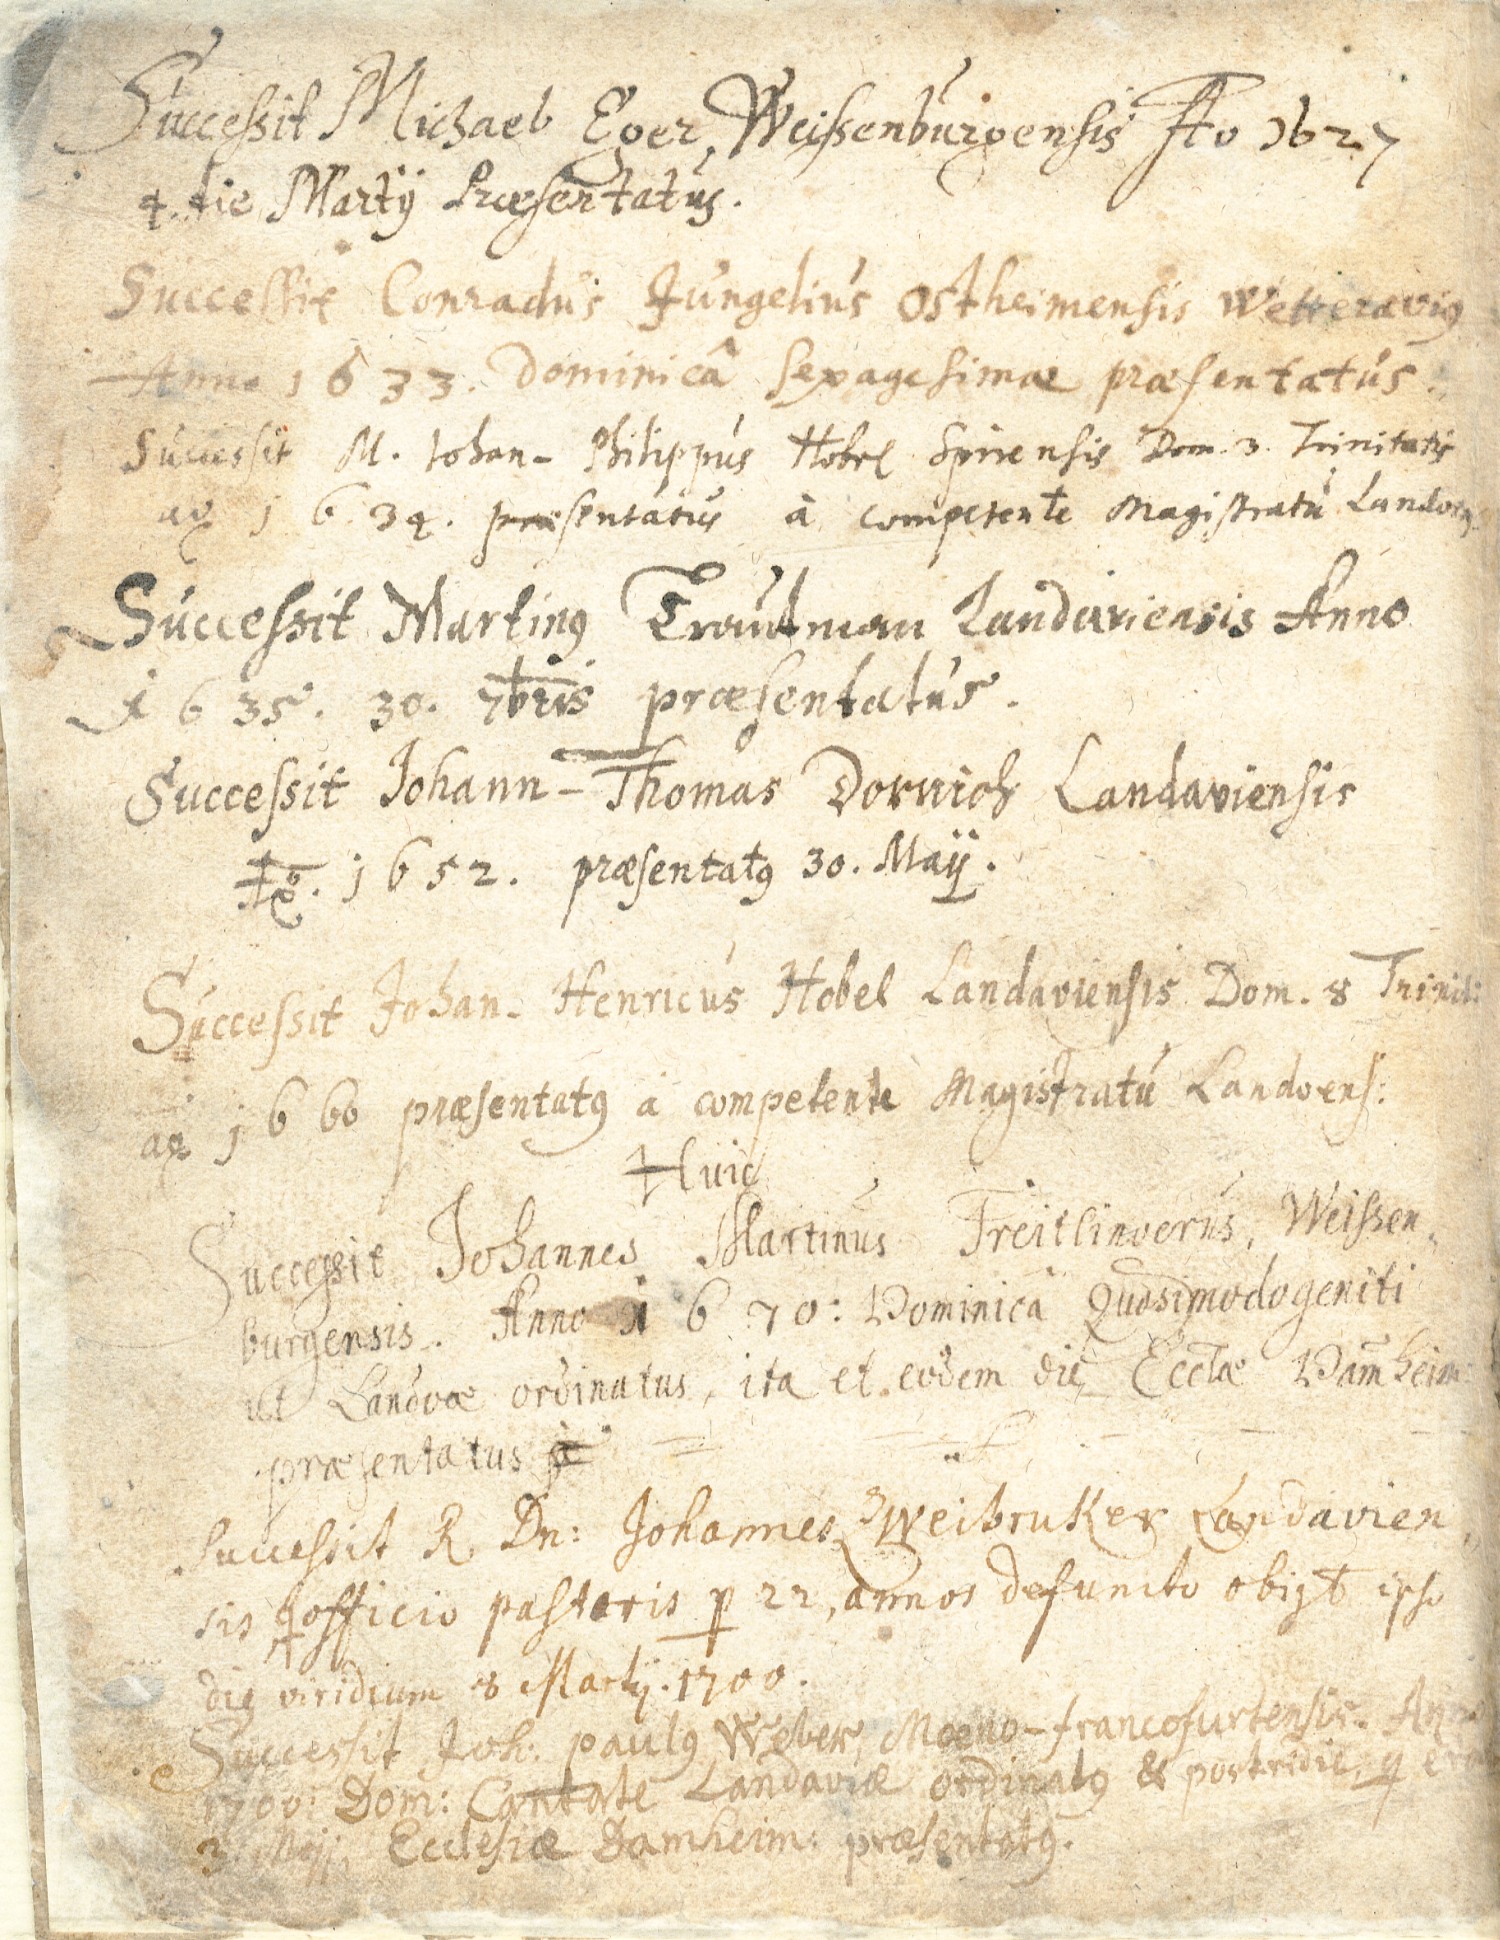 Successit Michael Eger, Weissenburgensis Ao 1627
4. die Martij Præsentatus.
Successit Conradus Jungelius Ostheimensis Wetteravig
Anno 1633. Dominicâ Sexagesimæ præsentatus.
Successit M. Johan- Philippus Hobel Spirensis Dom. 3. Trinitatis
ao 1634. præsentatus à competente Magistratu
Successit Marting Trautman Landaviensis Anno
1635. 30. 7bris præsentatus.
Successit Johann-Thomas Dorrich Landaviensis
Ao. 1652. præsentatg 30. Maij.
Successit Johan- Henricus Hobel Landaviensis Dom. 8 Trinit:
ao 1660 præsentatg a competente Magistratu Landvens:
Huic
Successit Johannes Martinus Freitlingerus, Weissen-
burgensis. Anno 1670: Dominicâ Quasimodogeniti
ut Landvæ ordinatus, ita et eodem die, Eccłæ Dam̄heim:
præsentatus
Successit R. Dn: Johannes Zweibruker Landavien
sis q officio pastoris p 22, annos defuncto obijt ipso
die viridium 8 Martij. 1700.
Successit Joh: paulg Weber, Moeno-francofurtensis.
1700: Dom: Cantate Landaviæ ordinatg & postridie, q
3. Maij, Ecclesiæ Damheim: præsentatg.